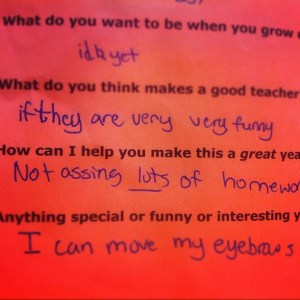 What do you want to be when you grow
idk yet
What do you think makes a good teacher
if they are very very funny
How can I help you make this a great yea
Not assing lots of homewo
Anything special or funny or interesting y
I can move my eyebrows